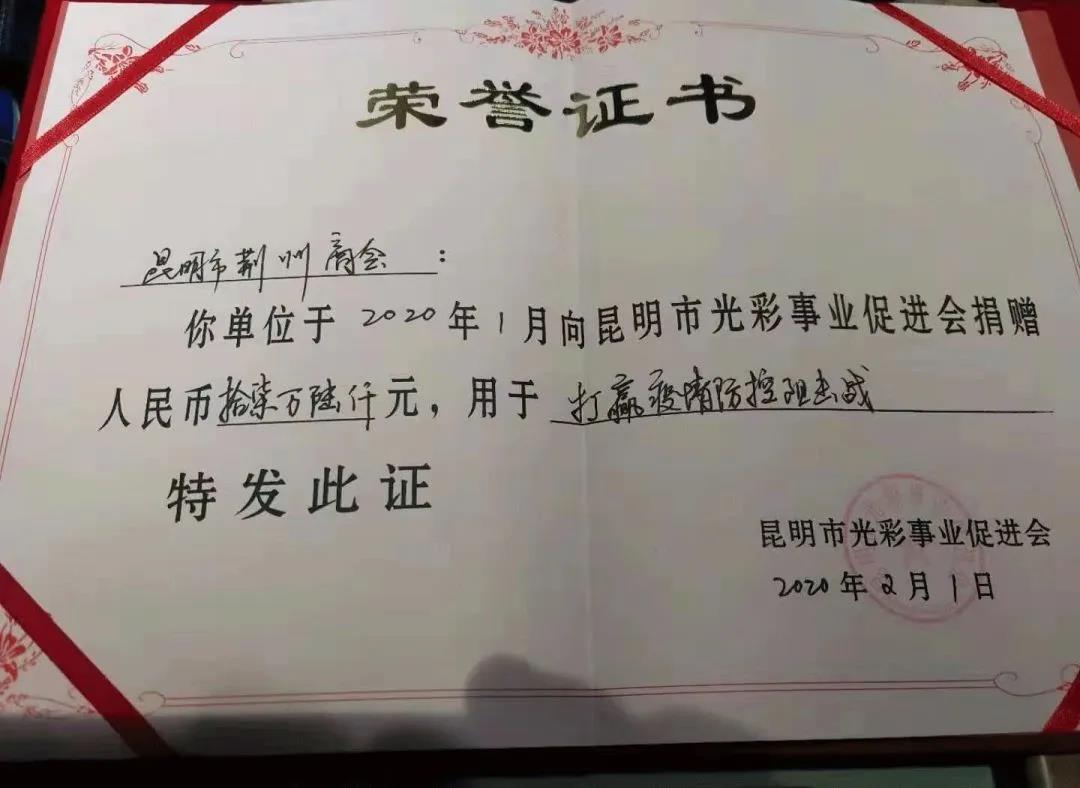 荣誉证书
昆明市荆州商会：
你单位于 2020 年 1 月向昆明市光彩事业促进会捐赠
人民币拾柒万陆仟元，用于 打赢疫情防控阻击战
特发此证
昆明市光彩事业促进会
2020 年 2 月 1 日